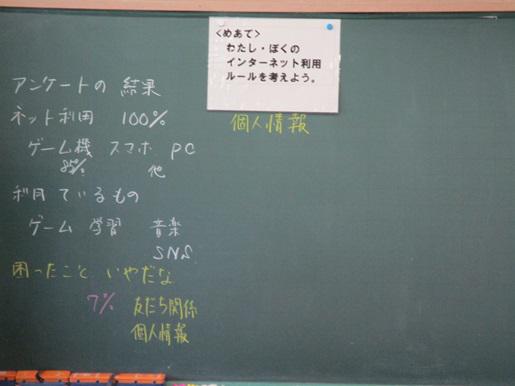 <めあて>
わたし・ぼくの
インターネット利用
ルールを考えよう。
個人情報
アンケートの 結果
ネット利用 100%
ゲーム機 スマホ PC
85% 他
利用 ているもの
ゲーム 学習 音楽
SNS
困ったこと いやだな
7% 友だち関係
個人情報